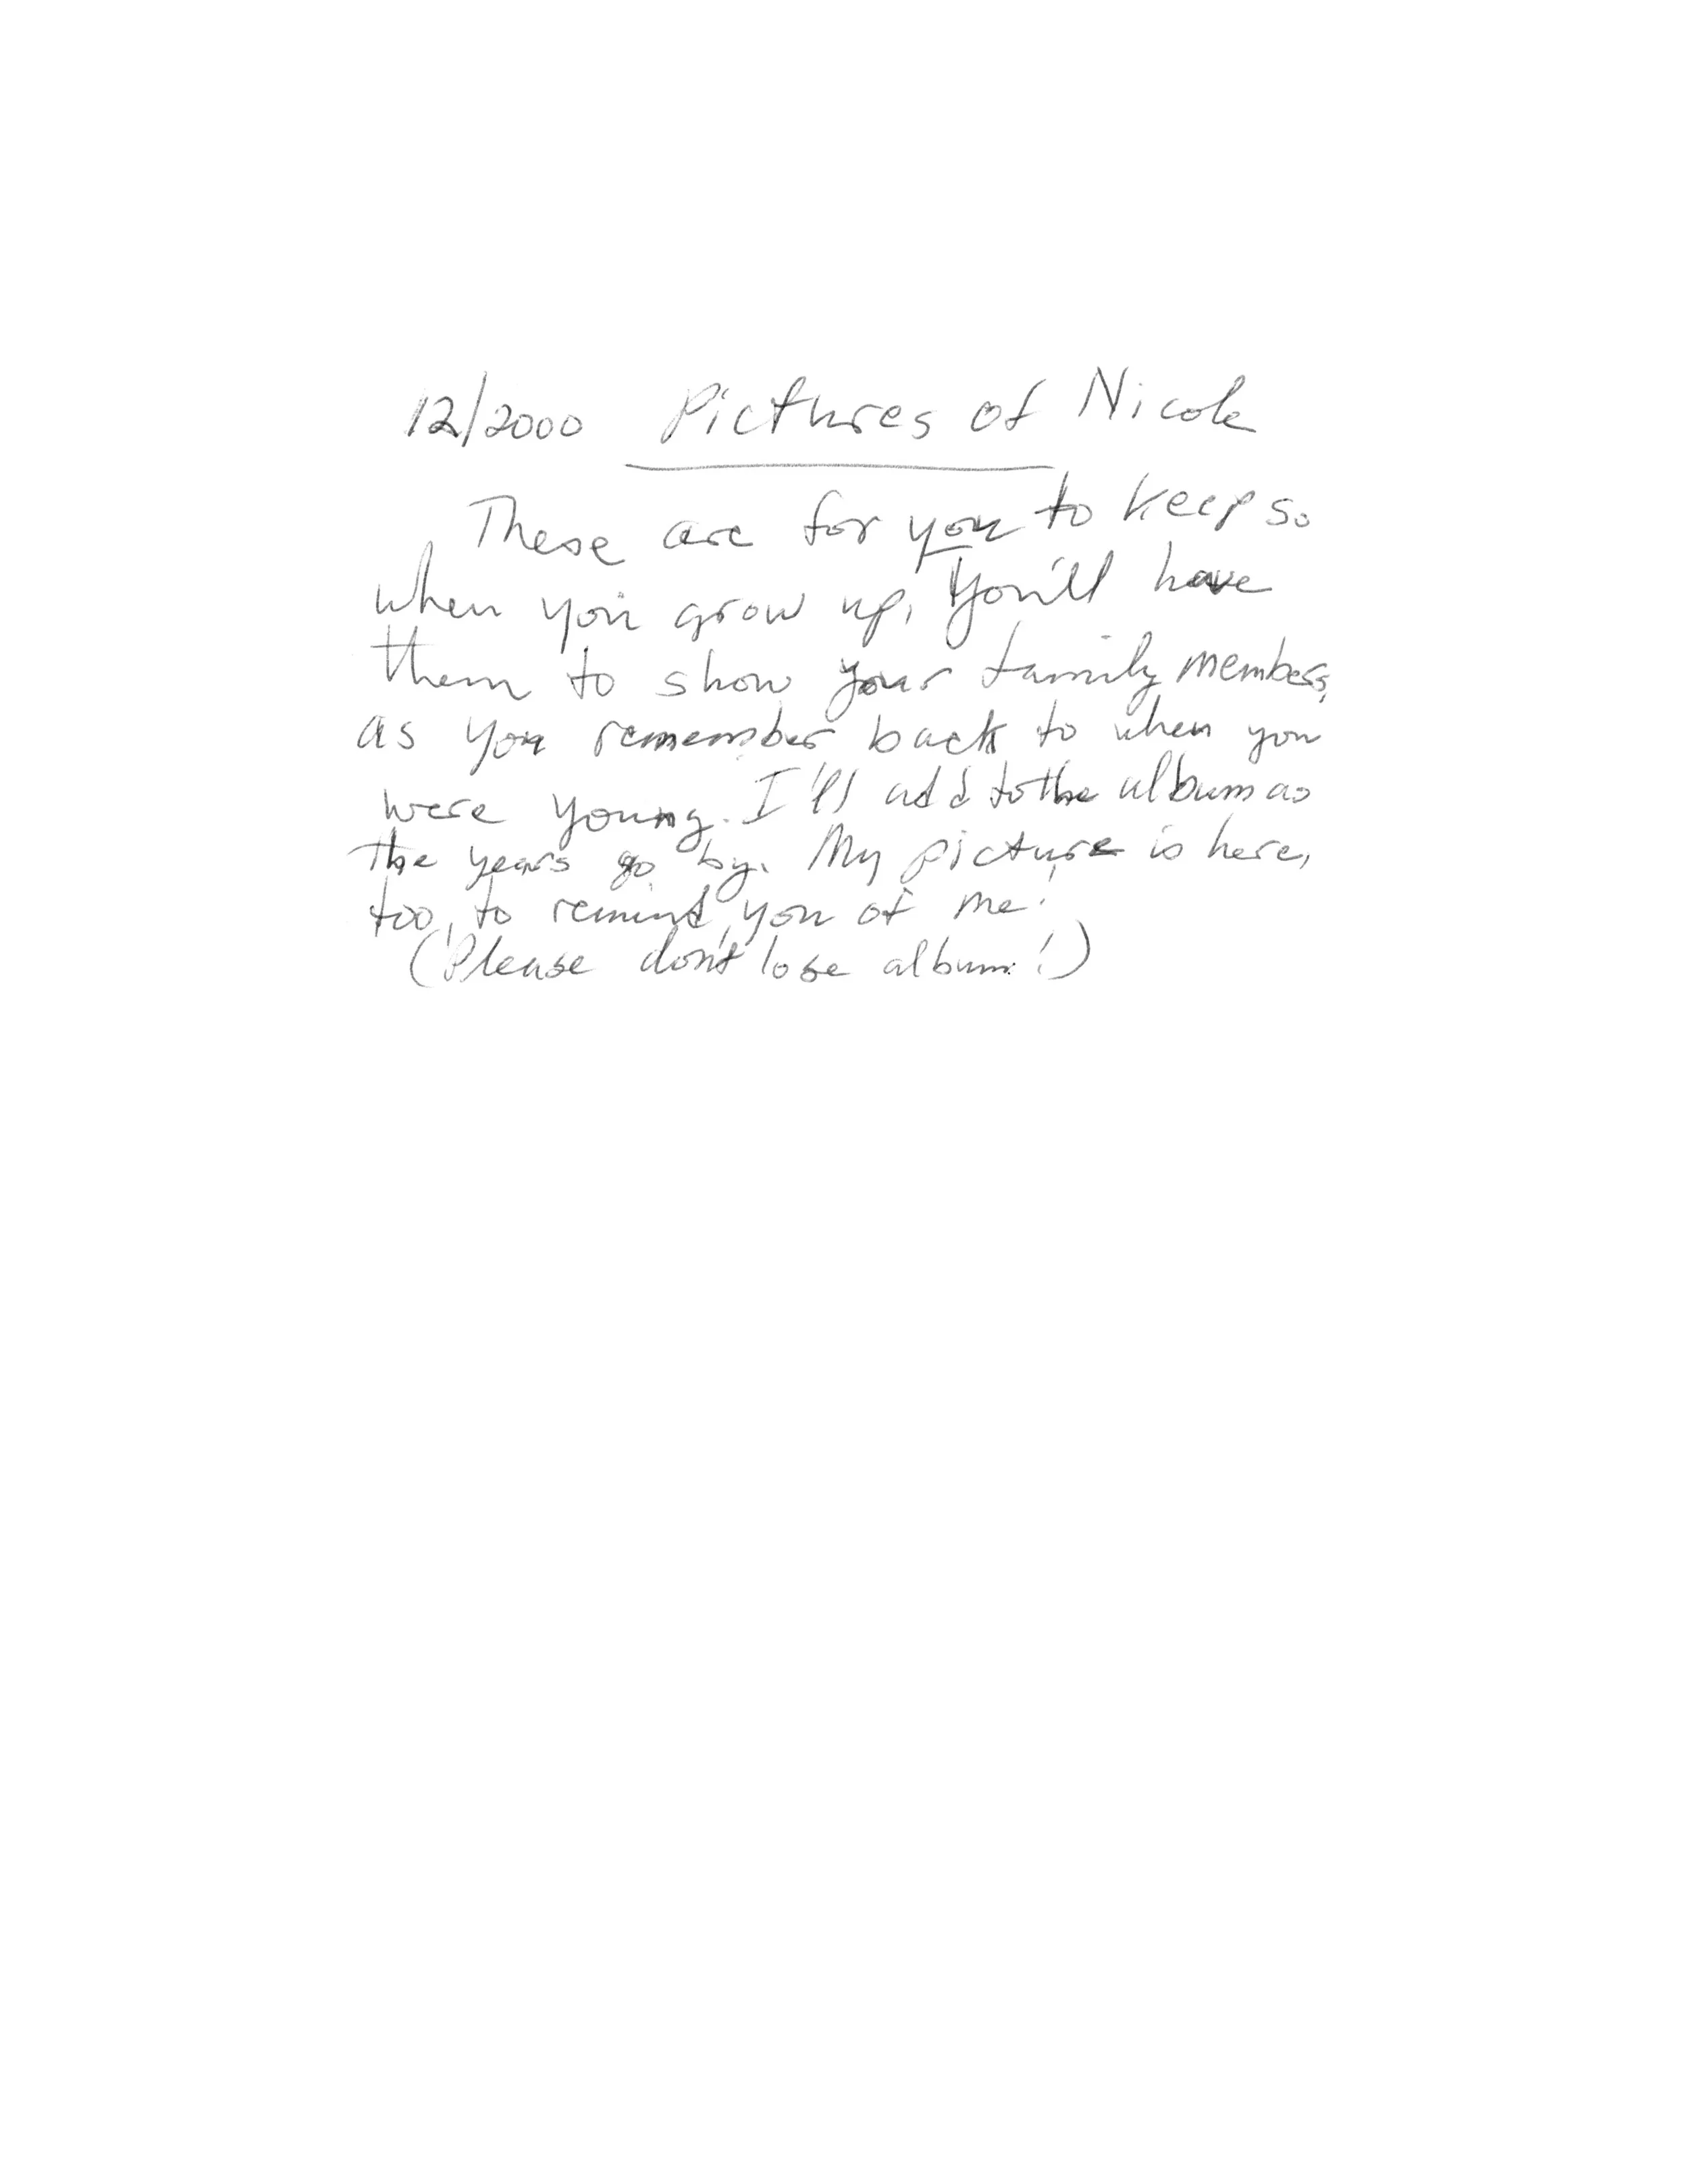 12/2000 Pictures of Nicole
These are for you to keep so
when you grow up, you'll have
them to show your family members,
as you remember back to when you
were young. I'll add to the album as
the years go by. My picture is here,
too, to remind you of me!
(Please don't lose album!)